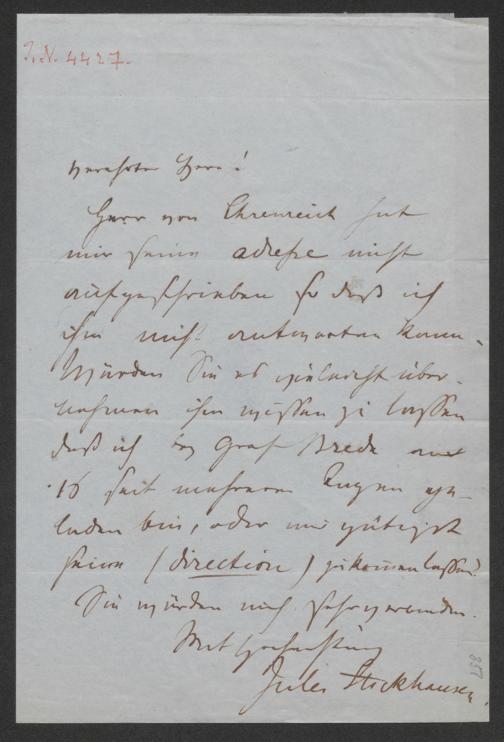 I.N. 4427.
verehrter Herr!
Herr von Ehrenreich hat
mir seine adresse nicht
aufgeschrieben so daß ich
ihm nicht antworten kann.
Würden Sie es vielleicht über-
nehmen ihm wissen zu lassen
daß ich bey Graf Wrede am
16 seit mehreren Tagen ge-
laden bin, oder mir gütigst
seine (direction) zukommen lassen?
Sie würden mich sehr verbinden.
Mit Hochachtung
Jules Stockhausen.